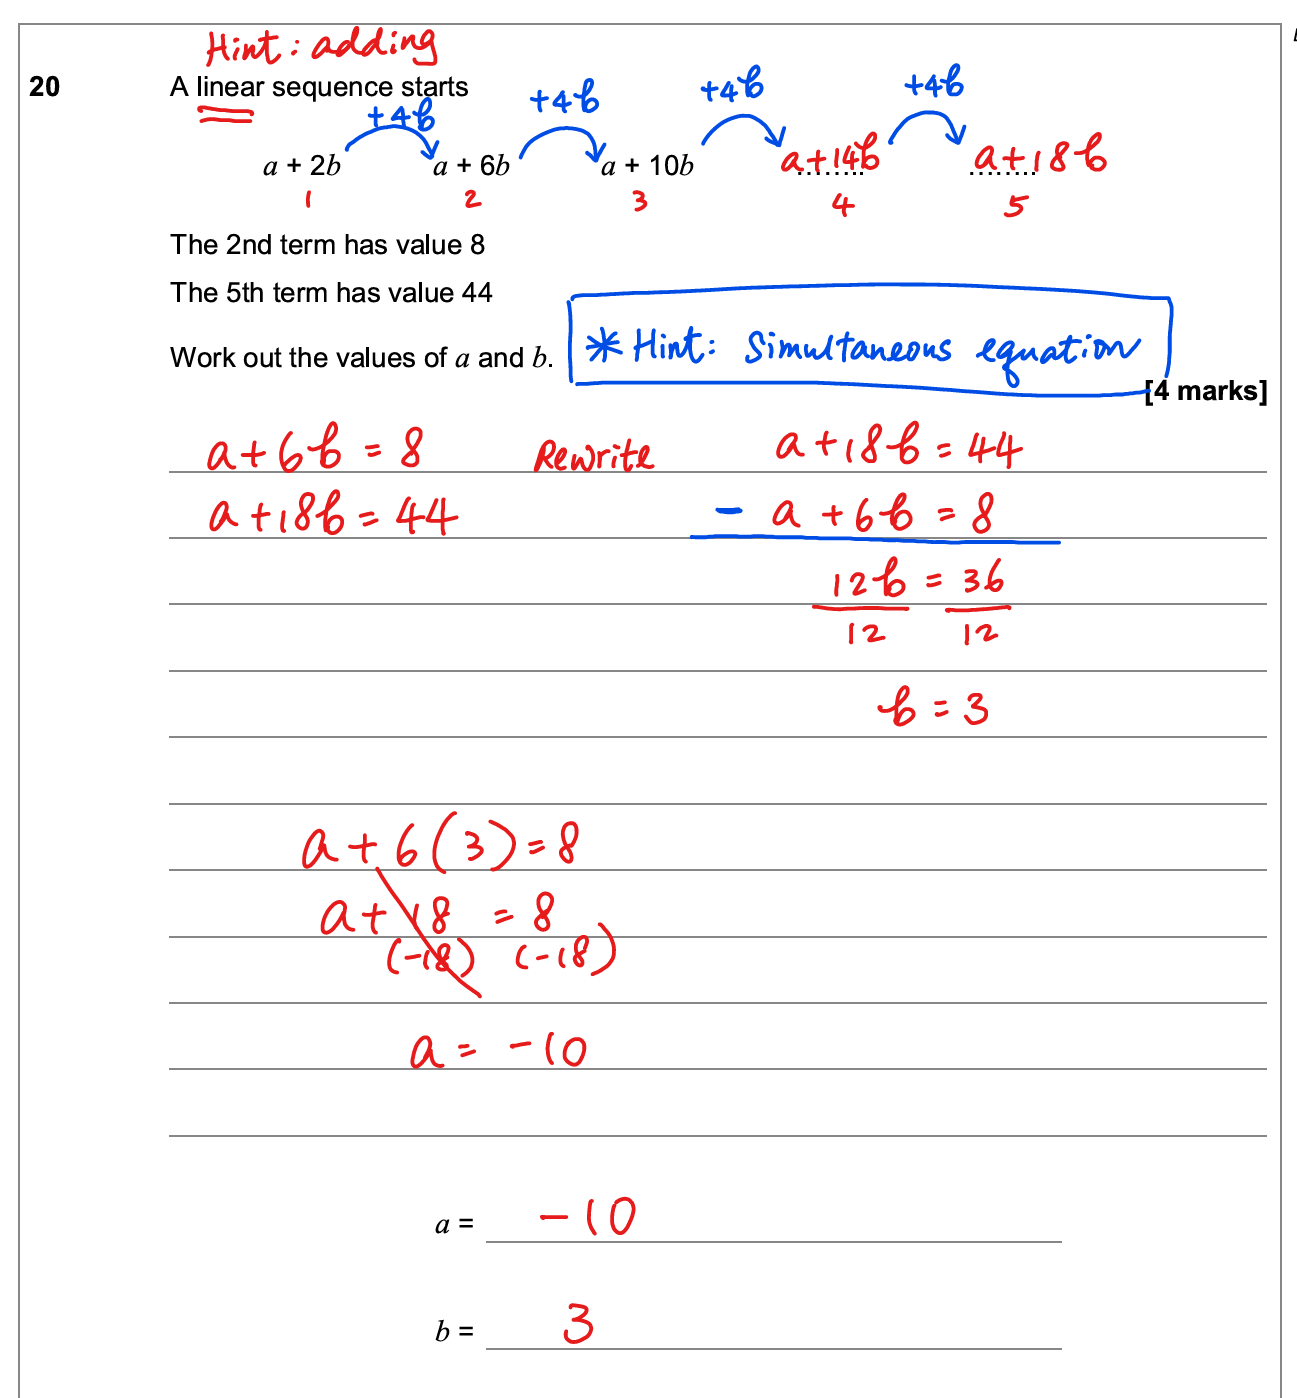 Hint: adding
20 A linear sequence starts
+4b +4b +4b +4b
a + 2b a + 6b a + 10b a+14b a+18b
1 2 3 4 5
The 2nd term has value 8
The 5th term has value 44
* Hint: Simultaneous equation
Work out the values of a and b.
[4 marks]
a+6b = 8 Rewrite a+18b = 44
a+18b = 44 - a+6b = 8
12b = 36
12 12
b = 3
a+6(3)=8
a+18 = 8
(-18) (-18)
a = -10
a = -10
b = 3